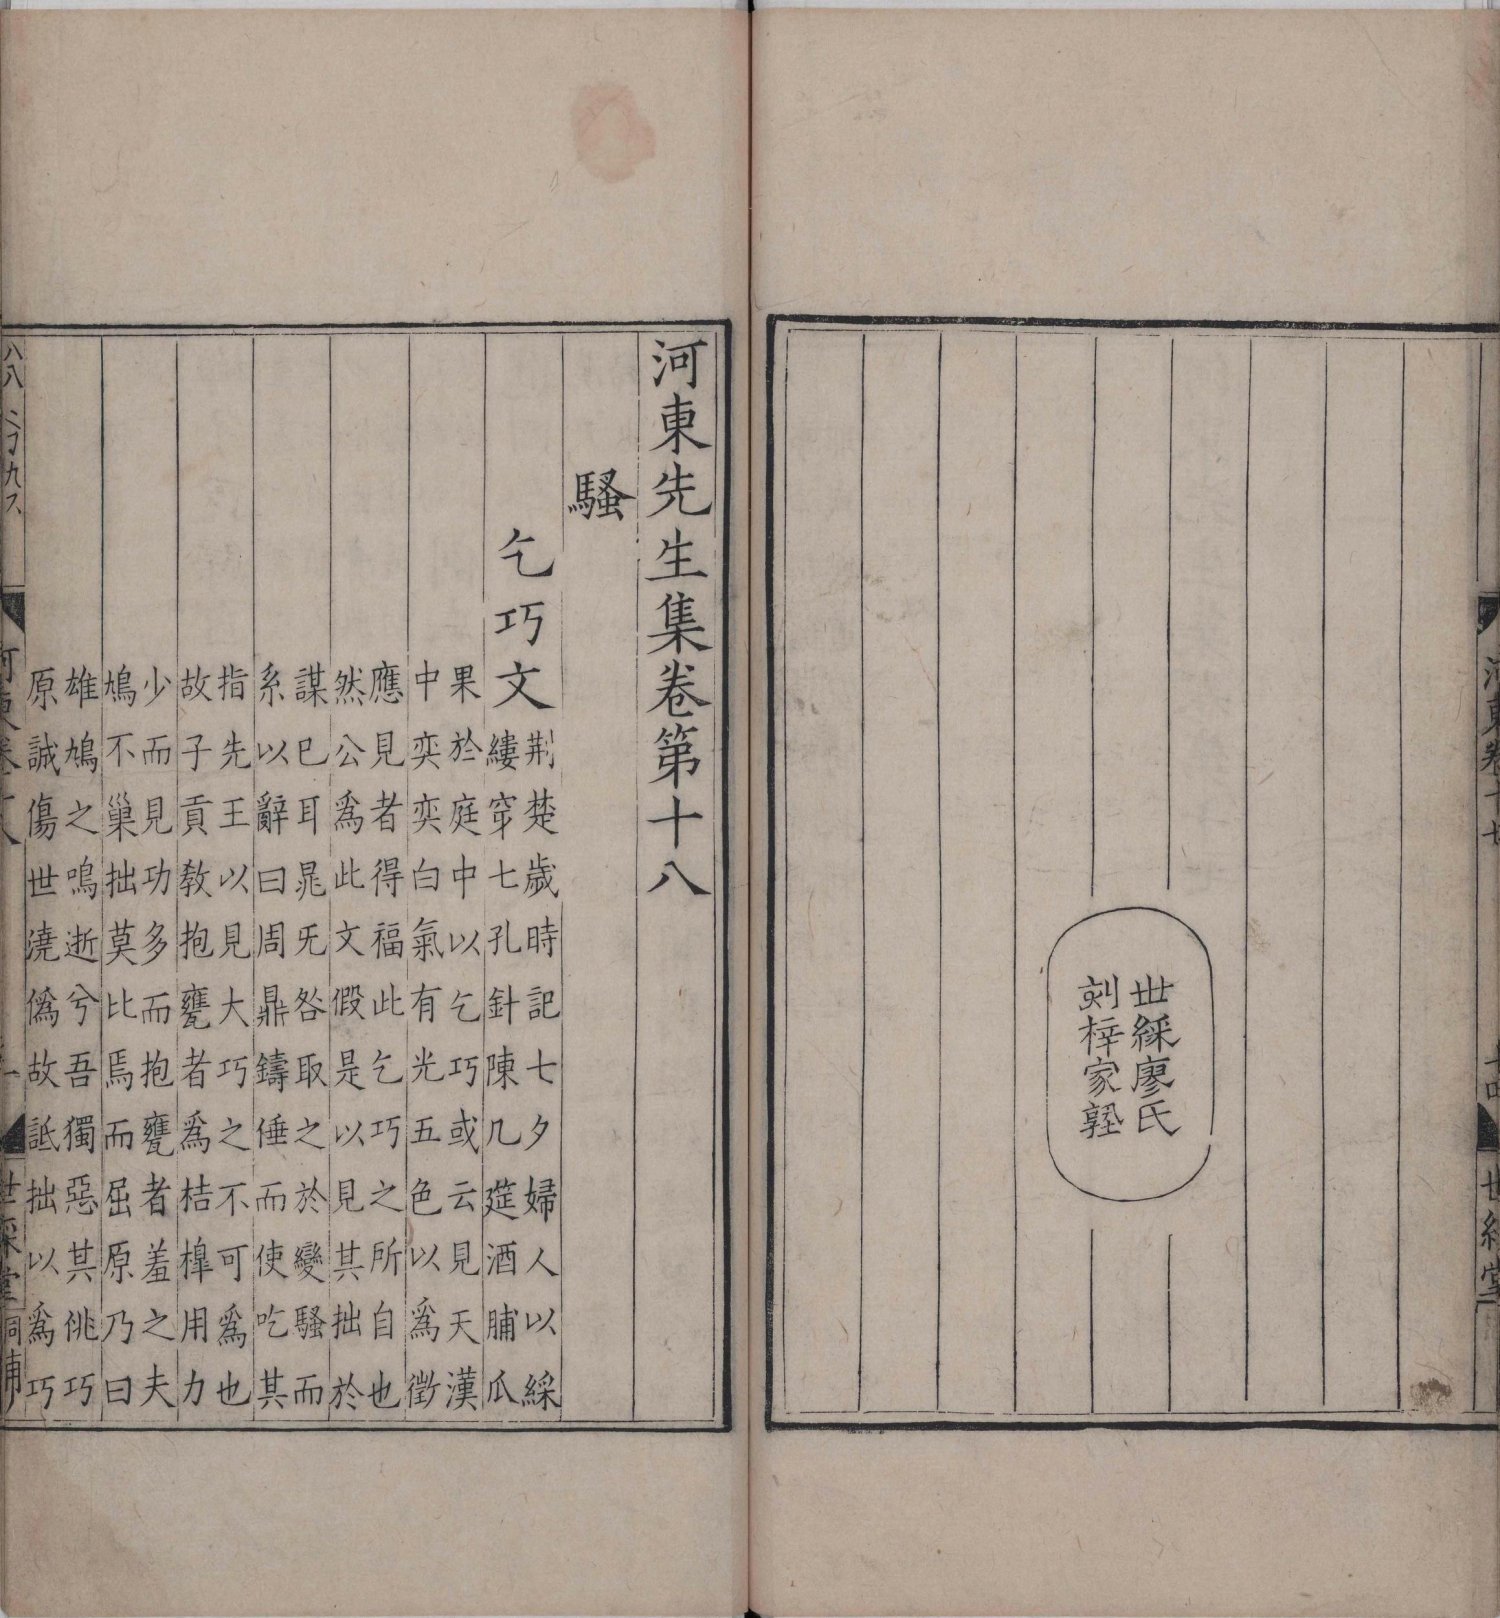 世綵廖氏
刻梓家塾
河東先生集卷第十八
騷
乞巧文
荆楚歲時記七夕婦人以綵
縷穿七孔針陳几筵酒脯瓜
果於庭中以乞巧或云見天漢
中奕奕白氣有光五色以爲徵
應見者得福此乞巧之所自也
然公爲此文假是以見其拙於
謀已耳晁旡咎取之於變騷而
系以辭曰周鼎鑄倕而使吃其
指先王以見大巧之不可爲也
故子貢教抱甕者爲桔槹用力
少而見功多而抱甕者羞之夫
鳩不巢拙莫比焉而屈原乃曰
雄鳩之鳴逝兮吾獨惡其佻巧
原誠傷世澆僞故詆拙以爲巧